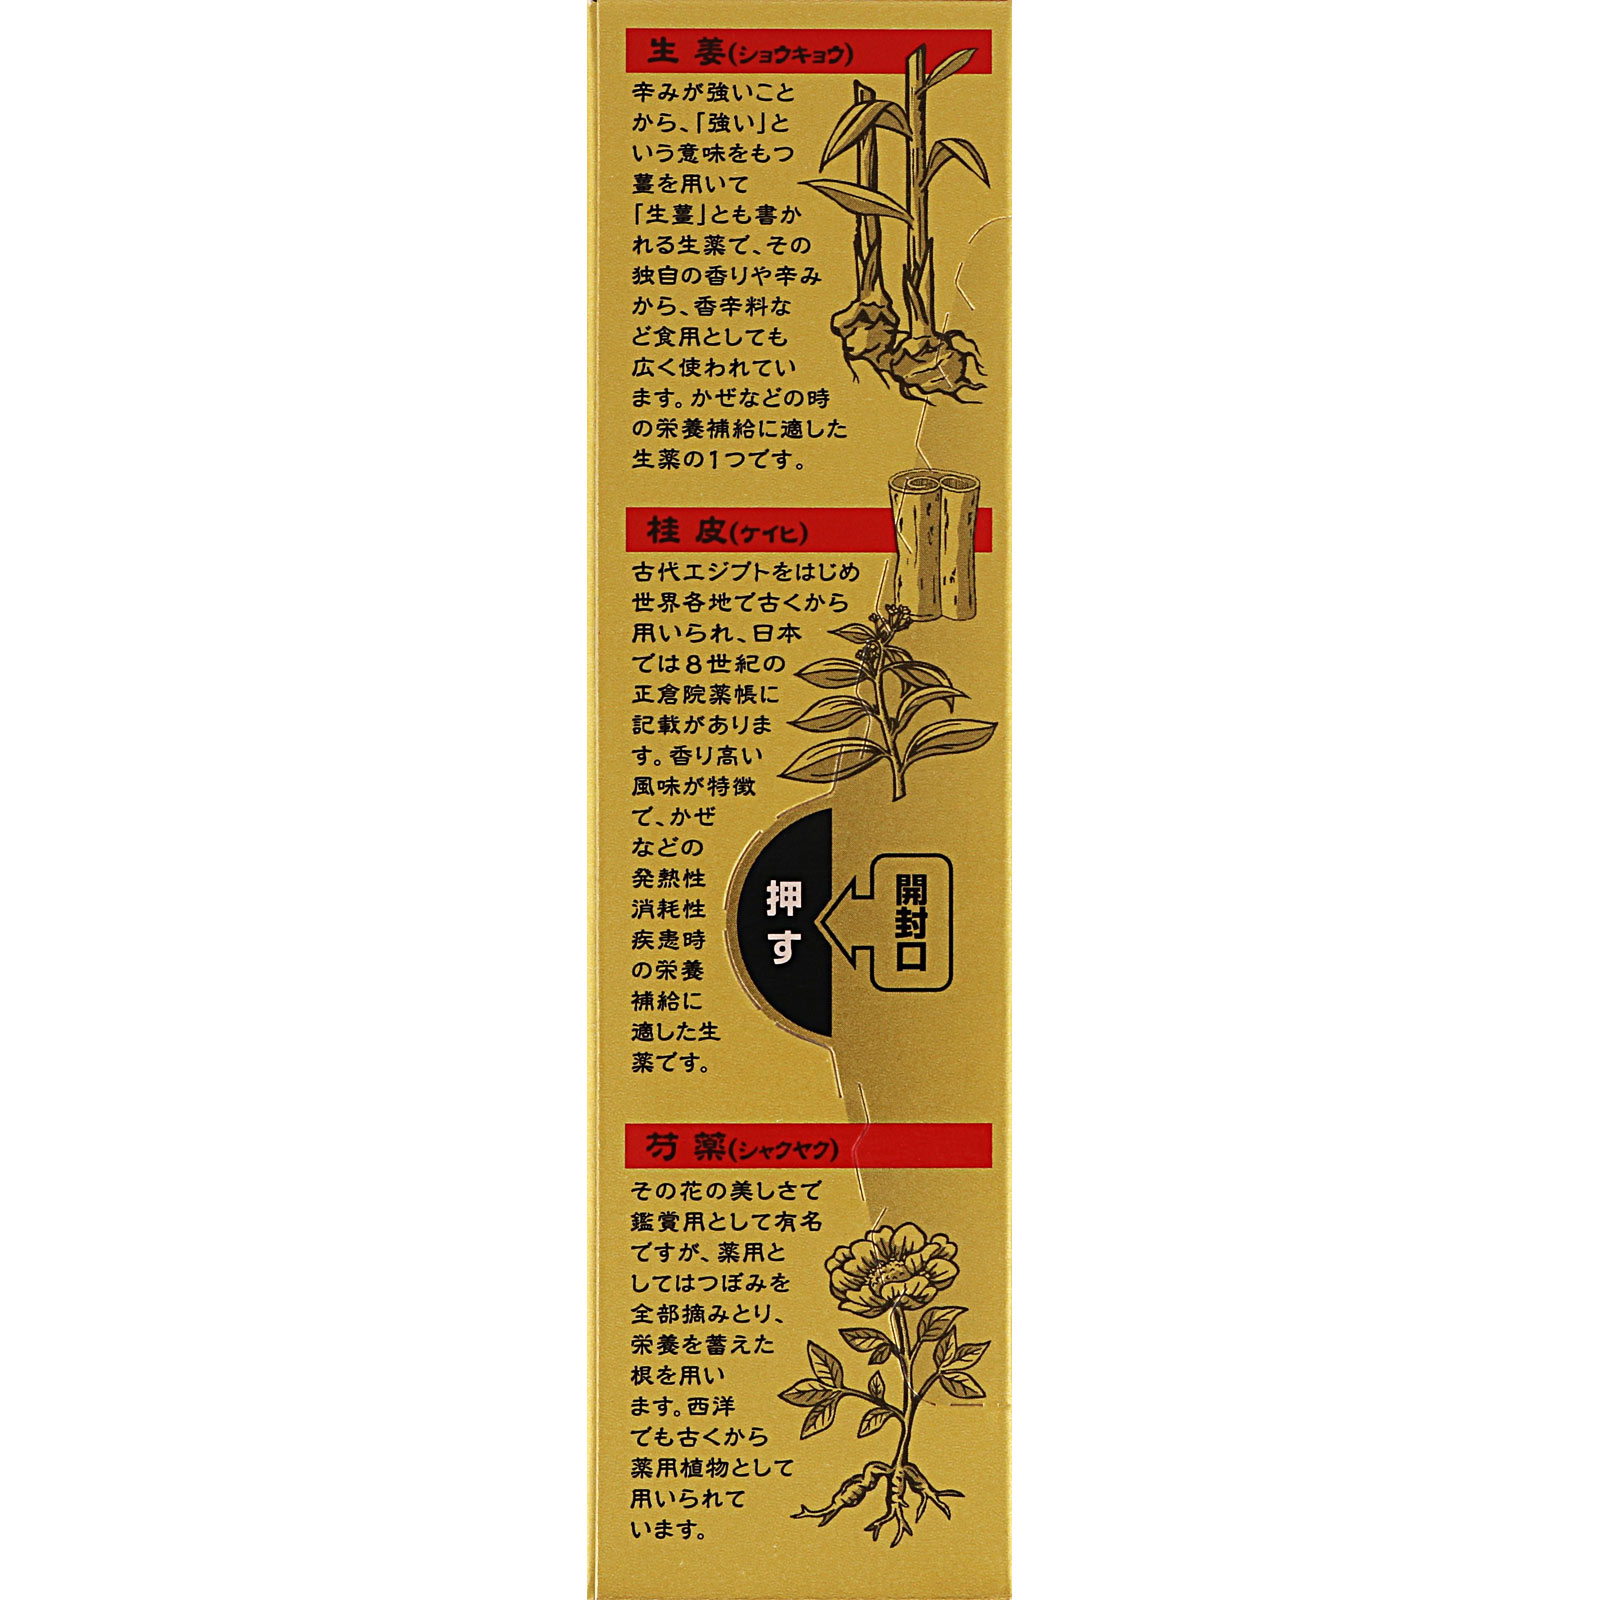 生姜(ショウキョウ)
辛みが強いこと
から、「強い」と
いう意味をもつ
薑を用いて
「生薑」とも書か
れる生薬で、その
独自の香りや辛み
から、香辛料な
ど食用としても
広く使われてい
ます。かぜなどの時
の栄養補給に適した
生薬の1つです。
桂皮(ケイヒ)
古代エジプトをはじめ
世界各地で古くから
用いられ、日本
では8世紀の
正倉院薬帳に
記載がありま
す。香り高い
風味が特徴
で、かぜ
などの
発熱性
消耗性
疾患時
の栄養
補給に
適した生
薬です。
押す
開封口
芍薬(シャクヤク)
その花の美しさで
鑑賞用として有名
ですが、薬用と
してはつぼみを
全部摘みとり、
栄養を蓄えた
根を用い
ます。西洋
でも古くから
薬用植物として
用いられて
います。